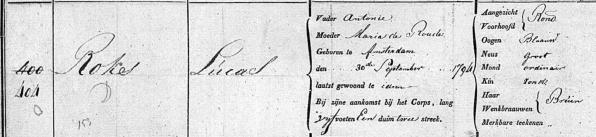 400
404
Rokes
Lucas
153
Vader Antonie
Moeder Maria de Roude
Geboren te Amsterdam
den 30sten September 1794
laatst gewoond te idem
Bij zijne aankomst bij het Corps, lang
vijf voeten Een duim twee streek.
Aangezicht Rond
Voorhoofd
Oogen Blaauw
Neus Groot
Mond ordinair
Kin rond
Haar Bruin
Wenkbraauwen
Merkbare teekenen